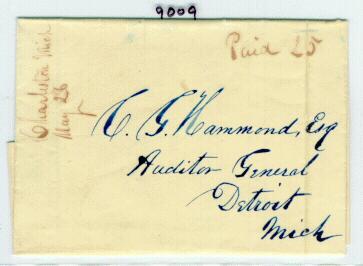 9009
Paid 25
Charleston Mich
May 26
C. G. Hammond, Esq
Auditor General
Detroit
Mich